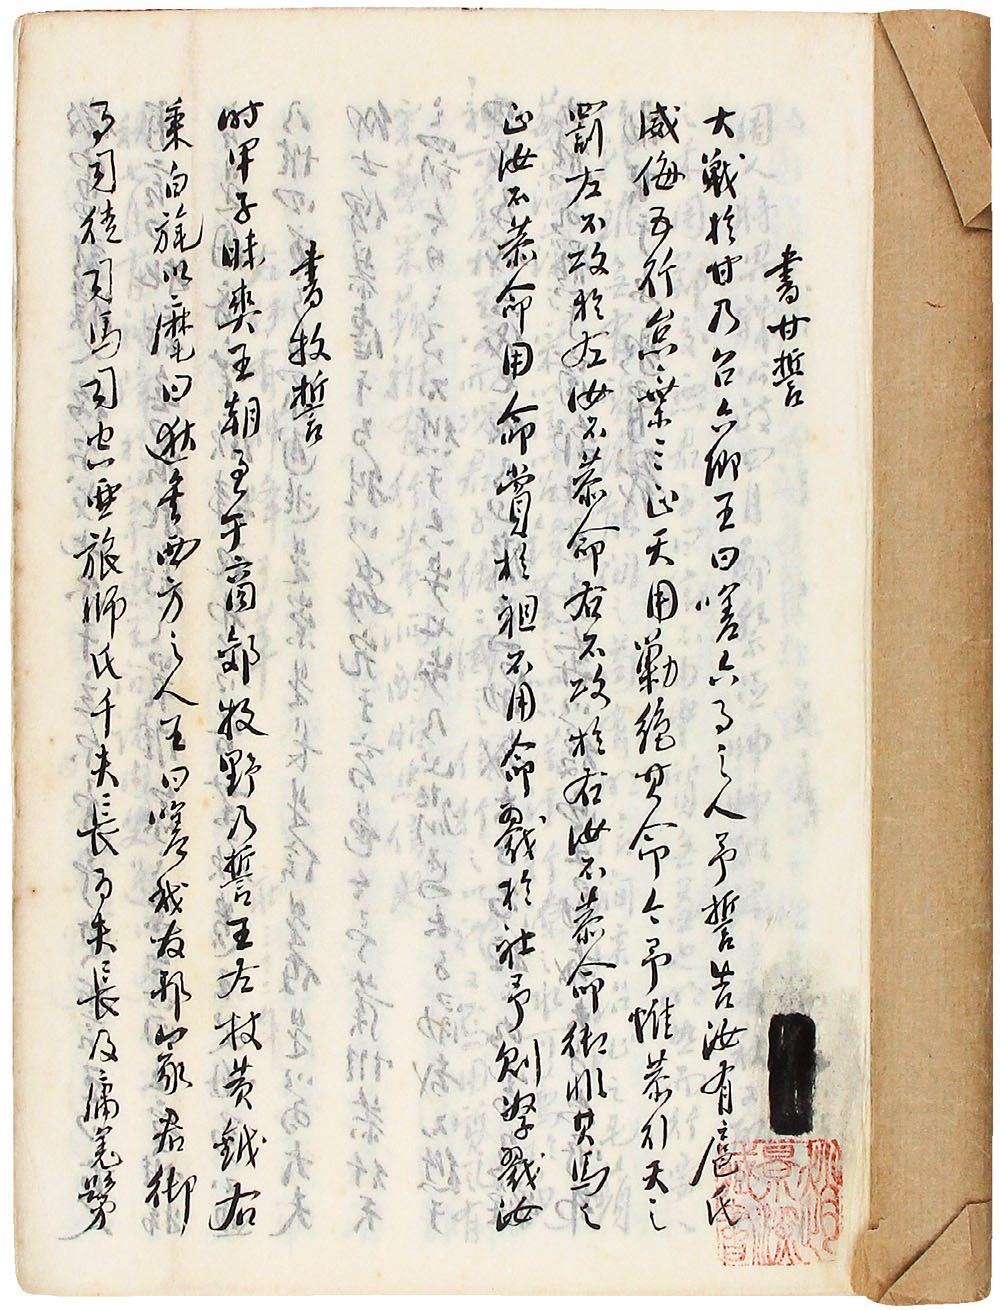 書甘誓
大戰於甘乃召六卿王曰嗟六事之人予誓告汝有扈氏
威侮五行怠棄三正天用勦絕其命今予惟恭行天之
罰左不攻於左汝不恭命右不攻於右汝不恭命御非其馬之
正汝不恭命用命賞於祖不用命戮於社予則孥戮汝
書牧誓
時甲子昧爽王朝至于商郊牧野乃誓王左杖黃鉞右
秉白旄以麾曰逖矣西方之人王曰嗟我友邦冢君御
事司徒司馬司空亞旅師氏千夫長百夫長及庸羌髳